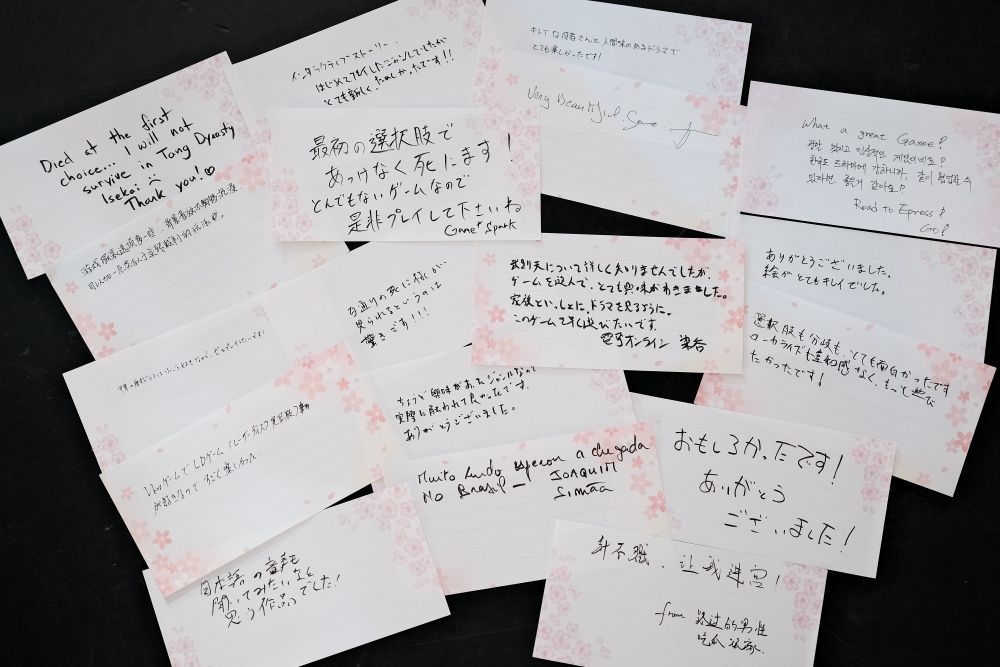 インタラクティブストーリー..
はじめてプレイしたジャンルでしたが
とても新しく、たのしかったです!!
キレイな役者さんと人間味のあるドラマで
とても楽しかったです!
Very Beautiful Game.
Died at the first
choice... I will not
survive in Tang Dynasty
Isekai
Thank you! ♡
最初の選択肢で
あっけなく死にます!
とんでもないゲームなので
是非プレイして下さいね
Game*Spark
What a great Game!
정말 멋지고 인상적인 게임이네요!
한국도 드라마에 강하니까, 같이 협업할 수
있다면 좋을거 같아요!
Road to Empress!
Go!
百通りの死に様が
見られるというのは
驚きです!!!
武則天について詳しく知りませんでしたが、
ゲームを遊んで、とても興味がわきました。
家族といっしょに、ドラマを見るように。
このゲームを早く遊びたいです。
電撃オンライン
ありがとうございました。
絵がとてもキレイでした。
選択肢も分岐も、とても面白かったです
ローカライズも違和感なく、もっと遊び
たかったです!
ちょうど興味があったジャンルなので
実際に触われて良かったです。
ありがとうございました。
Muito lindo esperon a chegada
No Brasil — JOAQUIM
Simãa
おもしろかったです!
ありがとう
ございました!
日本語の音声も
聞いてみたいなと
思う作品でした!
升不职,让我迷宫!
from 路过的男性
吃瓜